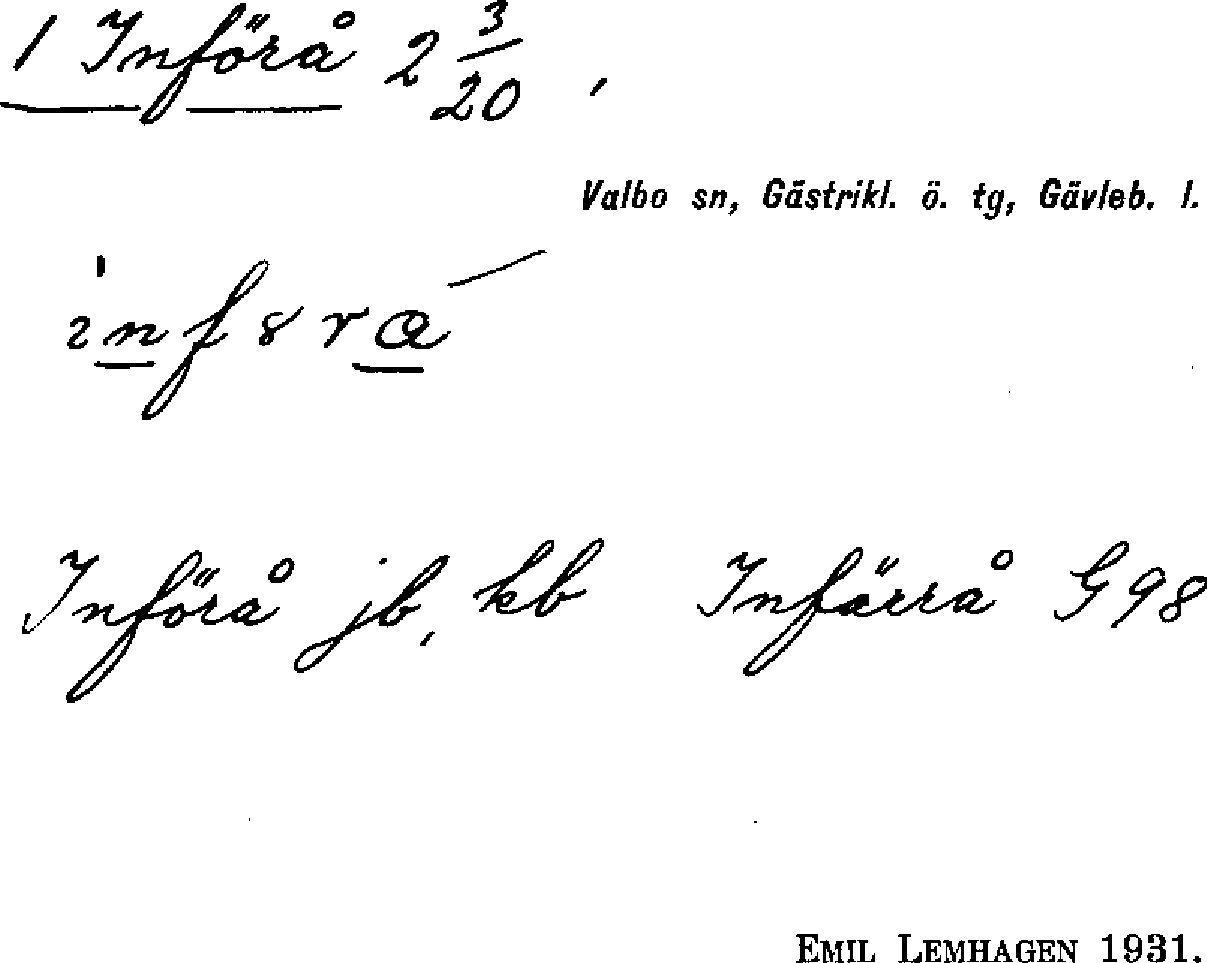 1 Införå 2 3/20 ,
Valbo sn, Gästrikl. ö. tg, Gävleb. l.
Införå jb, kb Infärrå G98
EMIL LEMHAGEN 1931.